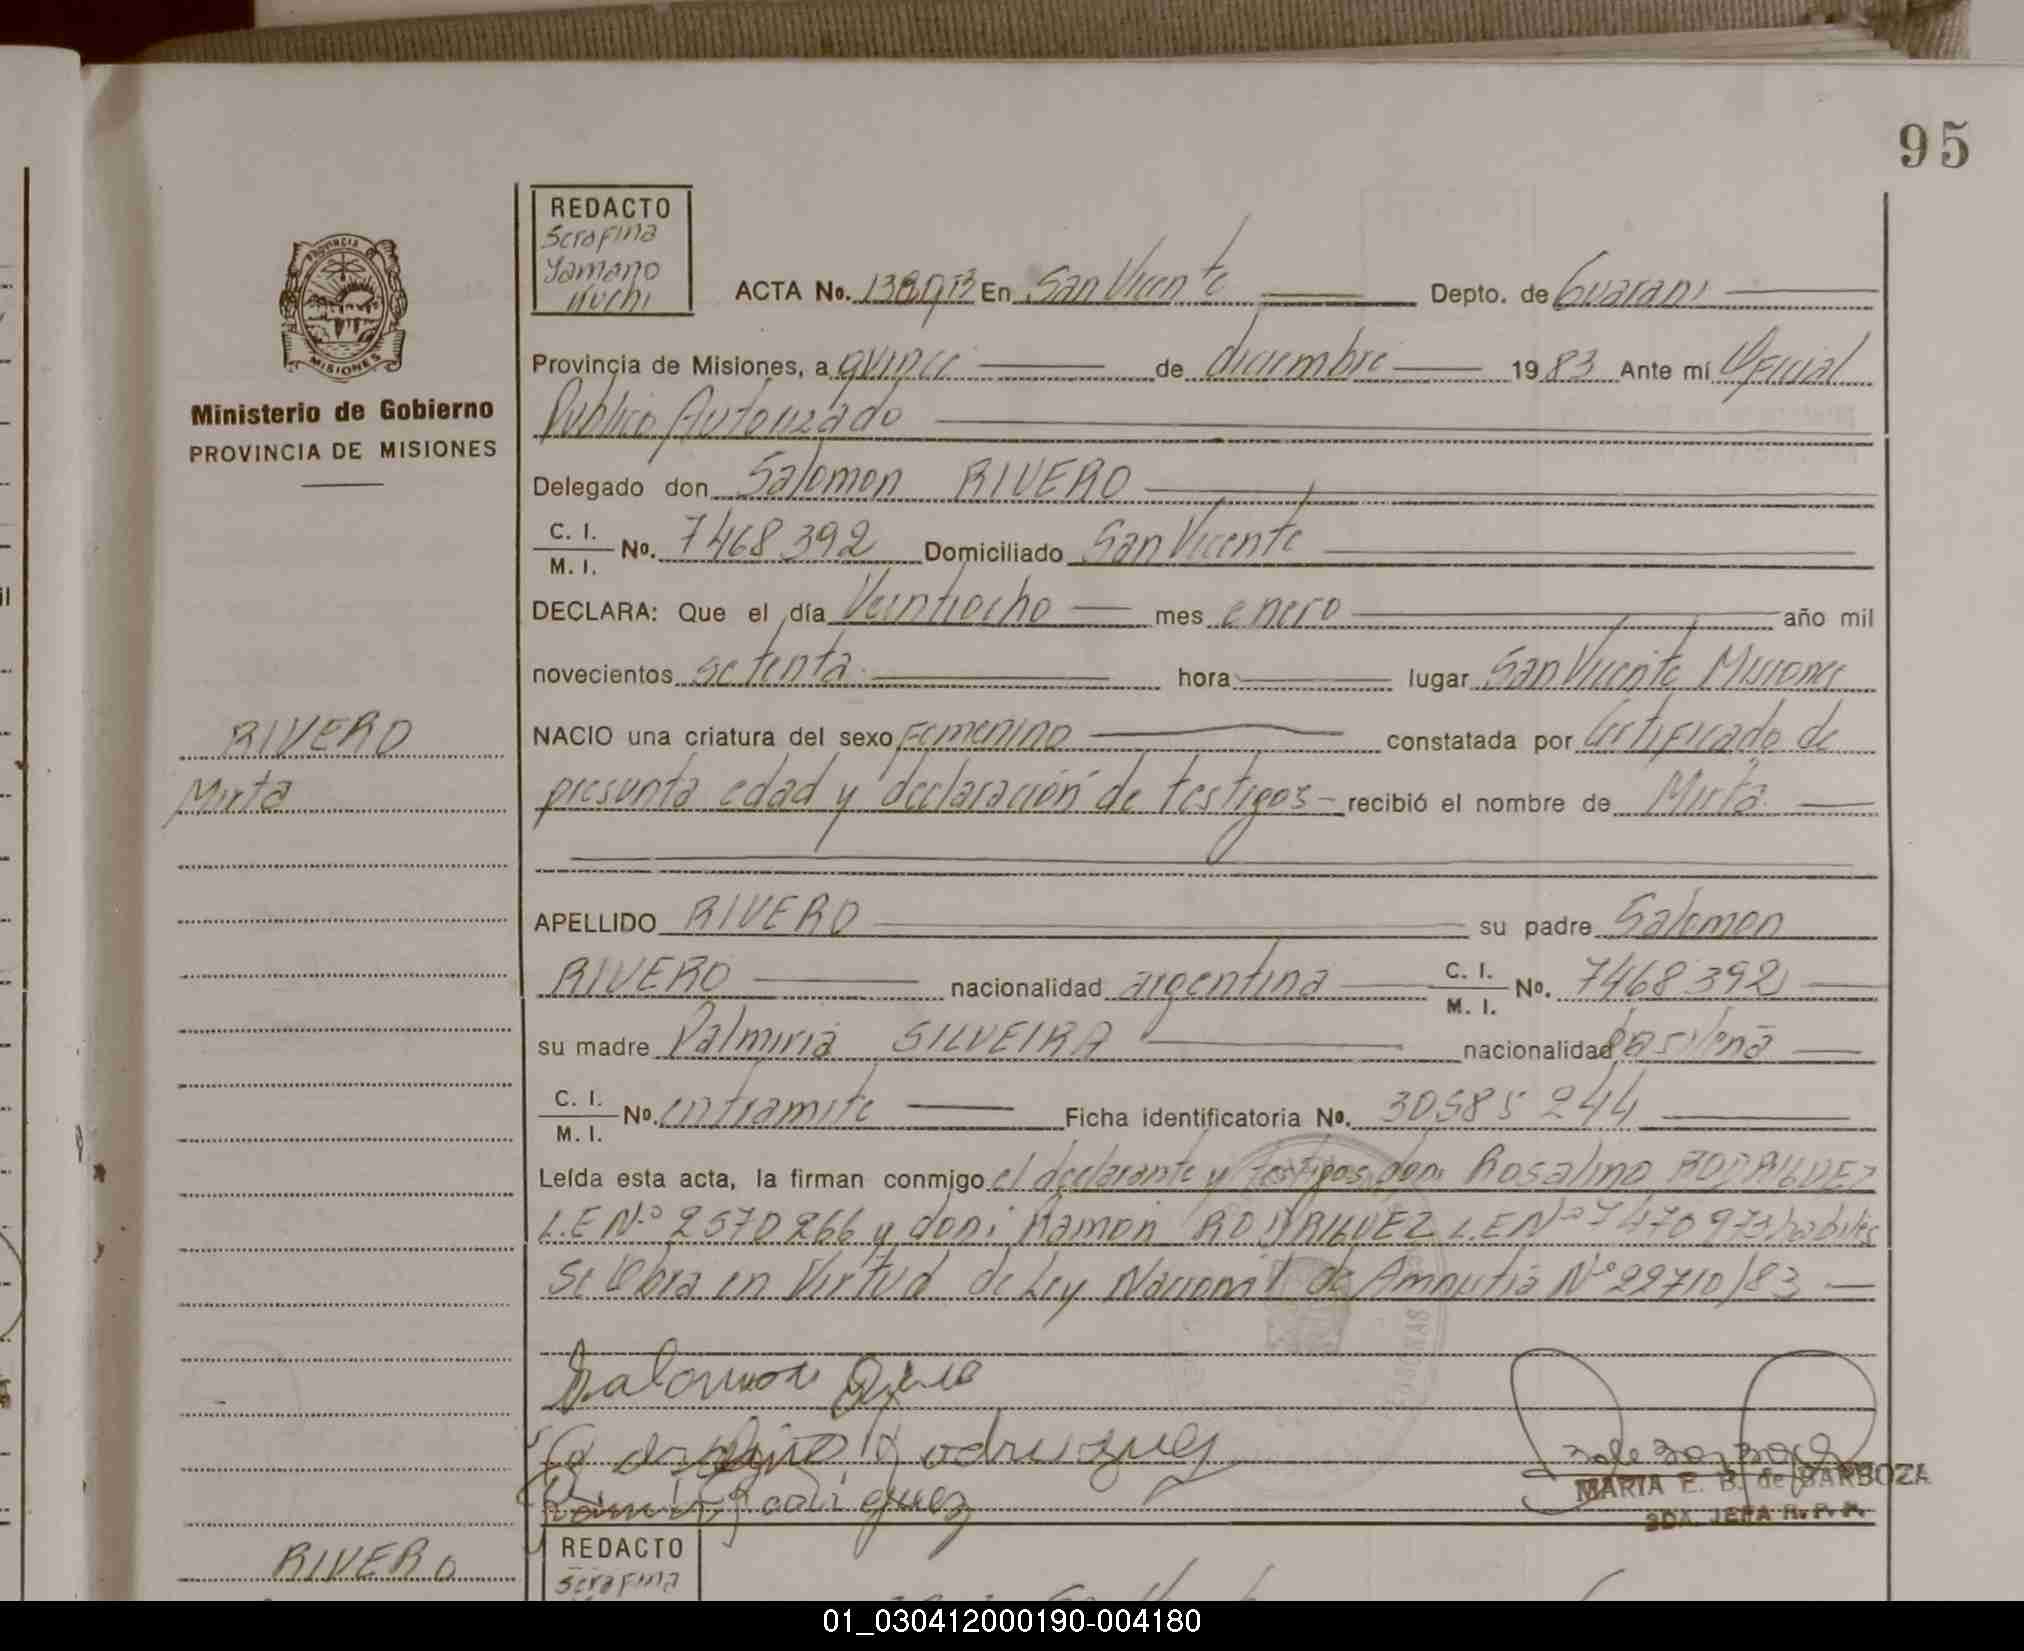 95
REDACTO
Serafina
Yamano
Kuchi
PROVINCIA
MISIONES
ACTA No. En San Vicente Depto. de Guarani
Ministerio de Gobierno
PROVINCIA DE MISIONES
Provincia de Misiones, a quince de diciembre 1983 Ante mí Oficial
Publico Autorizado
Delegado don Salomon RIVERO
C. I.
M. I. No. 7468392 Domiciliado San Vicente
DECLARA: Que el día Veintiocho mes enero año mil
novecientos setenta hora lugar San Vicente Misiones
RIVERO
Mirta
NACIO una criatura del sexo Femenino constatada por Certificado de
presunta edad y declaración de testigos recibió el nombre de Mirta
APELLIDO RIVERO su padre Salomon
RIVERO nacionalidad argentina C. I. M. I. No. 7468392
su madre Palmiria SILVEIRA nacionalidad
C. I.
M. I. No. entramite Ficha identificatoria No. 30585244
Leída esta acta, la firman conmigo el declarante y testigos don: Rosalino RODRIGUEZ
L.E Nº 2570266 y don: Ramon RODRIGUEZ L.E Nº 7470973 habiles
Se labra en Virtud de Ley Nacional de Amnistia Nº 22710/83
Salomon
Rodriguez
MARIA E. B. de BARBOZA
JEFA R. P. P.
RIVERO
REDACTO
Serafina
01_030412000190-004180